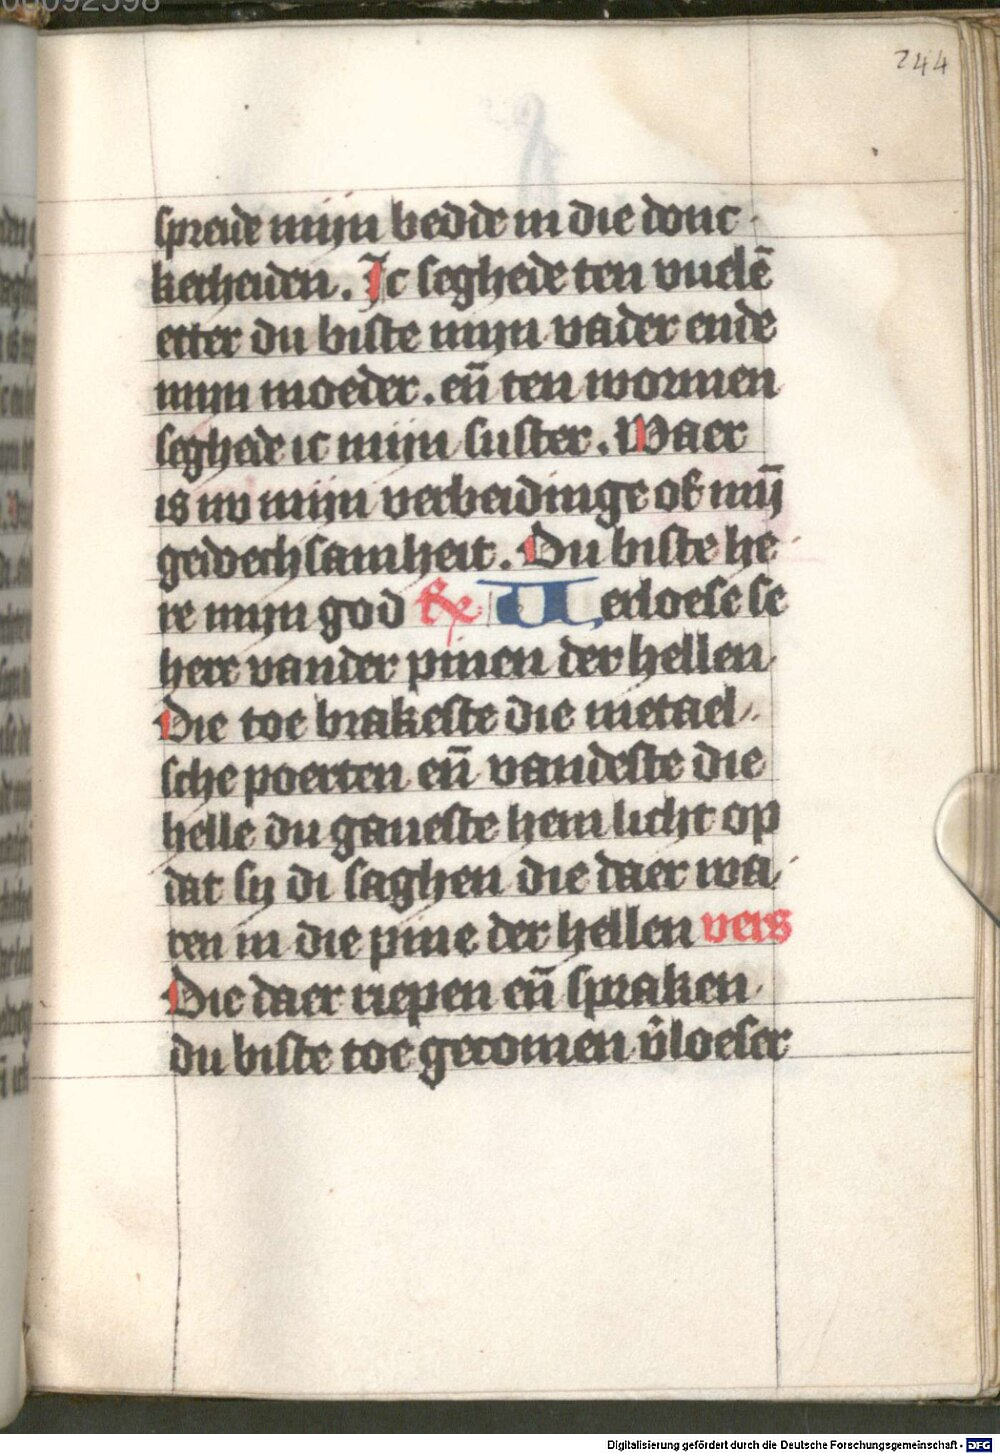 00092598
244
spreide mijn bedde in die donc
kerheiden. Ic seghede ten vuelē
etter du biste mijn vader ende
mijn moeder. eñ ten wormen
seghede ic mijn suster. Waer
is nv mijn verbeidinge of mij̄
gedoechsamheit. Du biste he
re mijn god ℟ Uerloese se
here vander pinen der hellen
Die toe brakeste die metael
sche poerten eñ vandeste die
helle du gaueste hem licht op
dat sy di saghen die daer wa
ren in die pine der hellen vers
Die daer riepen eñ spraken
du biste toe gecomen v̉loeser
Digitalisierung gefördert durch die Deutsche Forschungsgemeinschaft - DFG